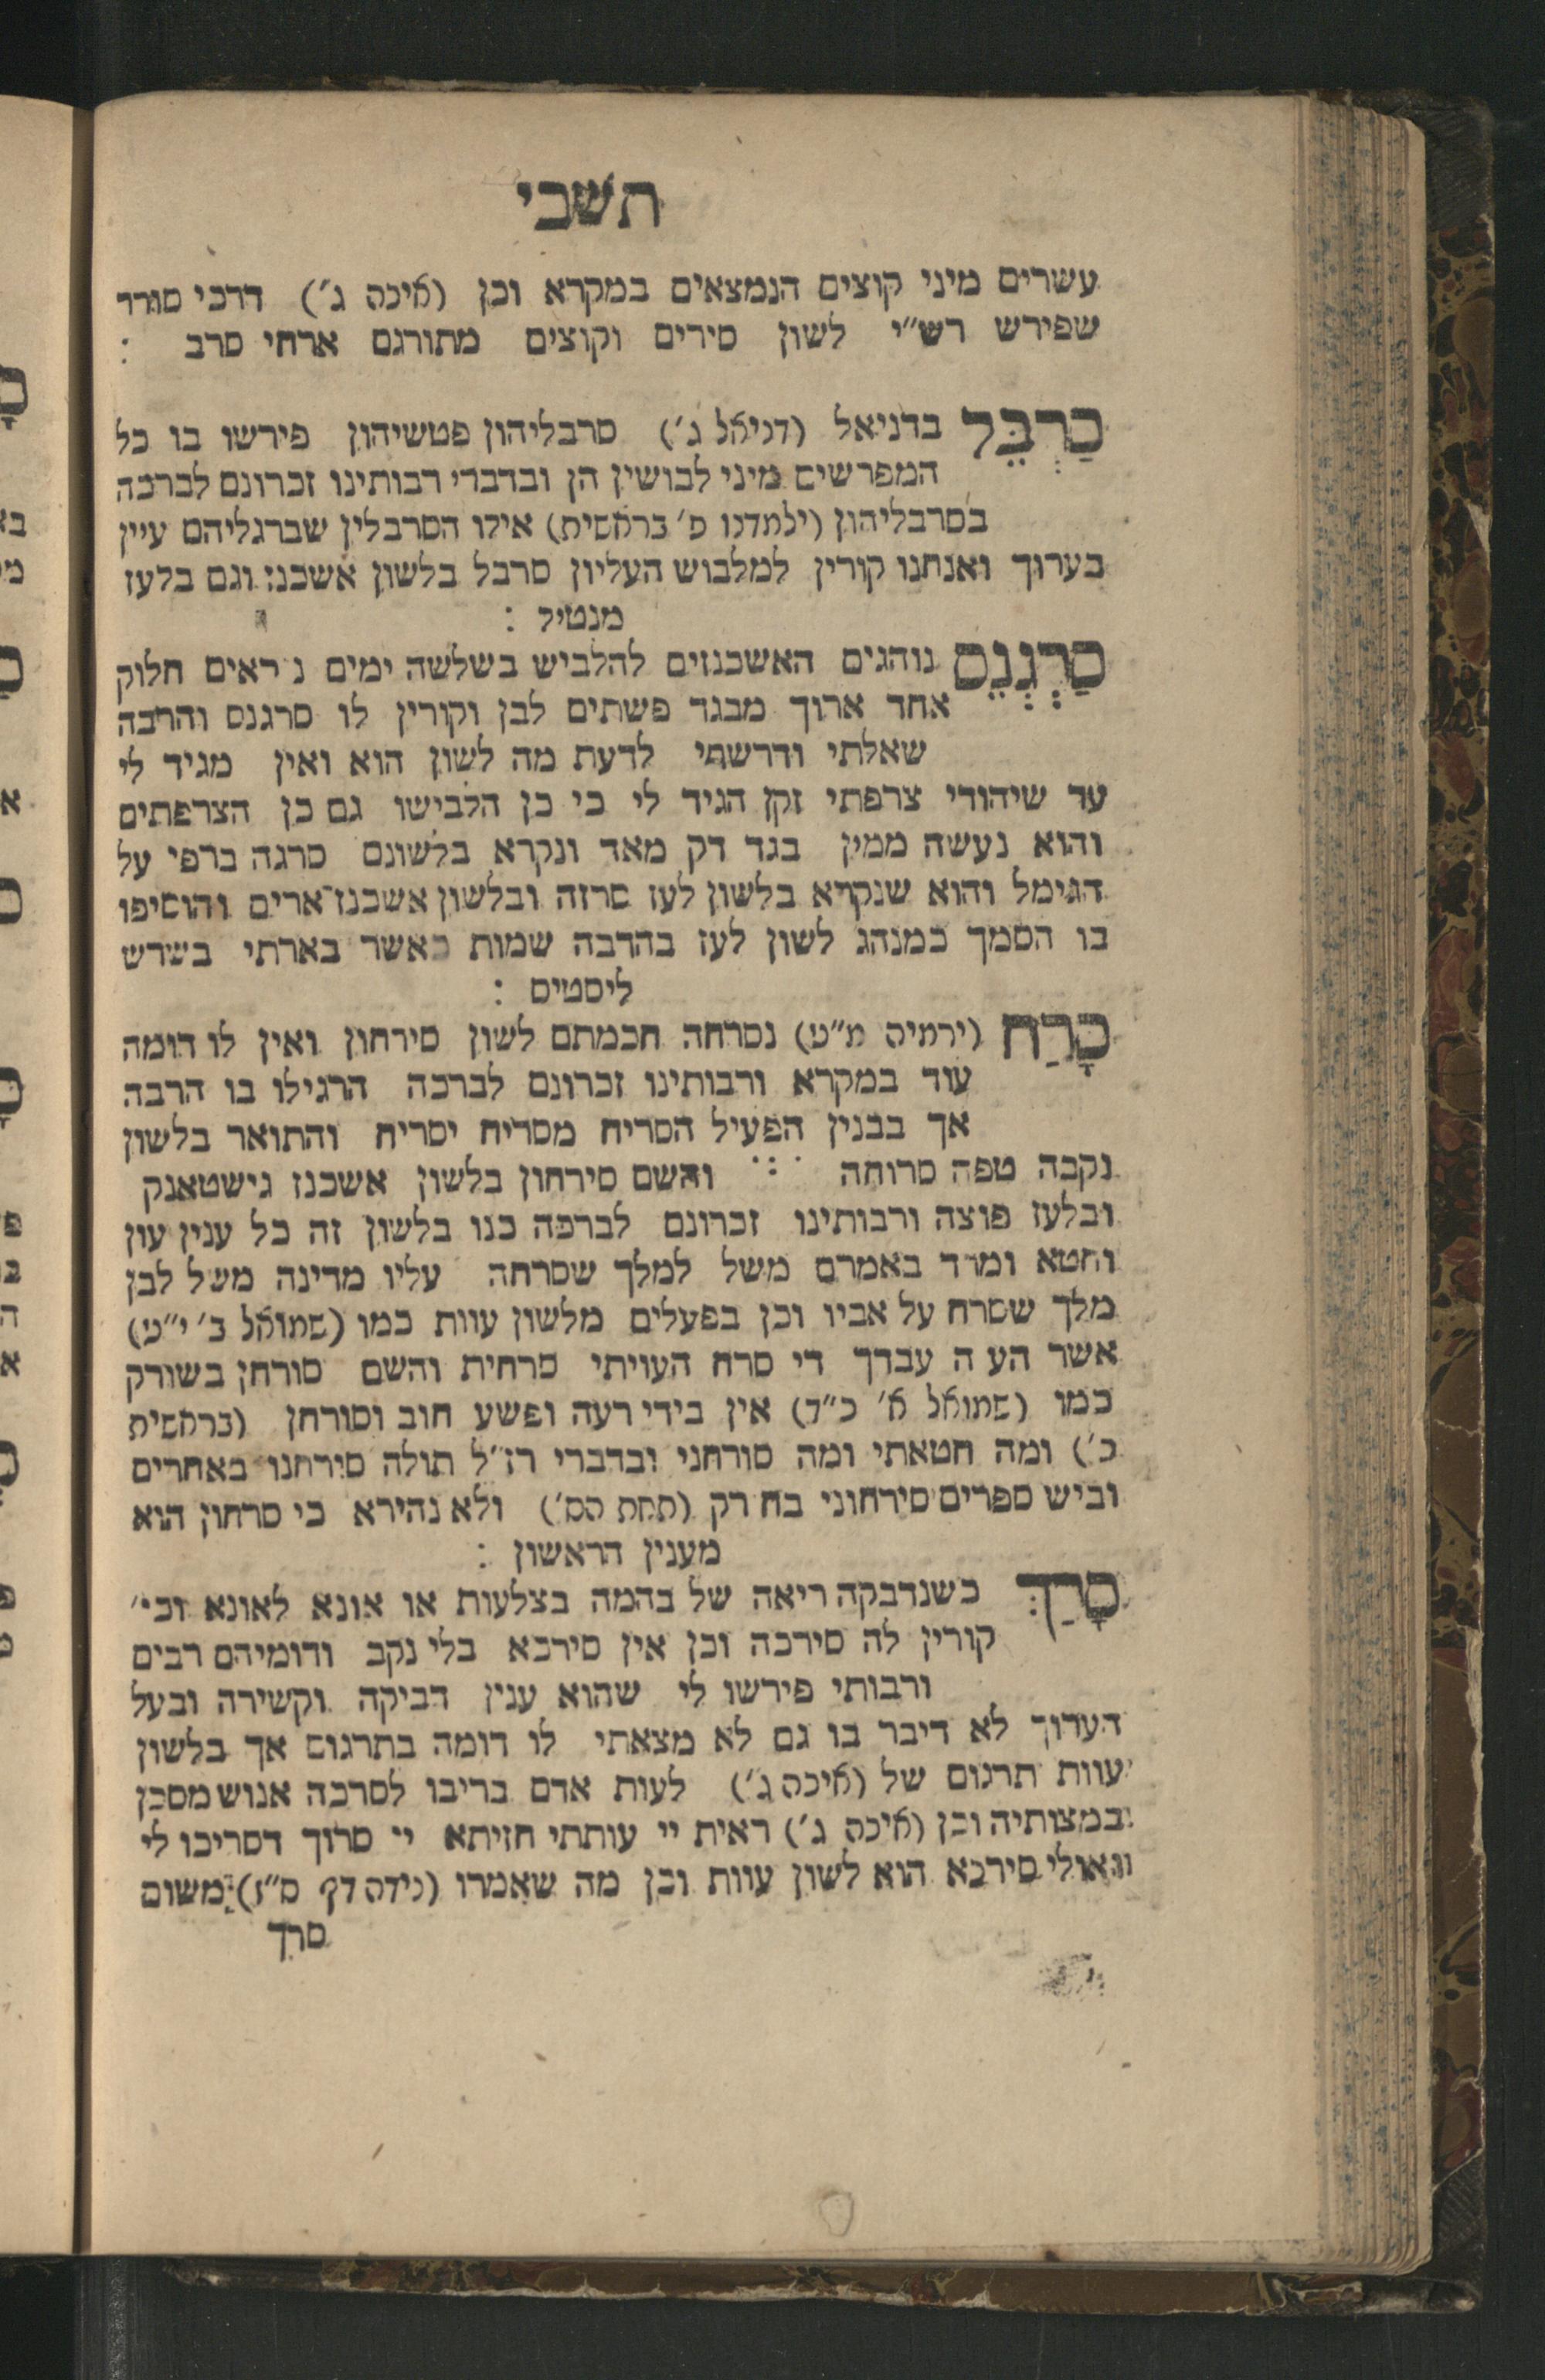 תשבי
עשרים מיני קוצים הנמצאים במקרא וכן (איכה ג׳) דרכי סורר
שפירש רש״י לשון סירים וקוצים מתורגם ארחי סרב :
סַרְבֵּל בדניאל (דניאל ג׳) סרבליהון פטשיהון פירשו בו כל
המפרשים מיני לבושין הן ובדברי רבותינו זכרונם לברכה
בסרבליהון (ילמדנו פ׳ בראשית) אילו הסרבלין שברגליהם עיין
בערוך ואנחנו קורין למלבוש העליון סרבל בלשון אשכנז וגם בלעז
מנטיל :
סַרְגְנֵס נוהגים האשכנזים להלביש בשלשה ימים נ ראים חלוק
אחד ארוך מבגד פשתים לבן וקורין לו סרגנס והרבה
שאלתי ודרשתי לדעת מה לשון הוא ואין מגיד לי
עד שיהודי צרפתי זקן הגיד לי כי כן הלבישו גם כן הצרפתים
והוא נעשה ממין בגד דק מאד ונקרא בלשונם סרגה ברפי על
הגימל והוא שנקרא בלשון לעז סרזה ובלשון אשכנז ארים והוסיפו
בו הסמך כמנהג לשון לעז בהרבה שמות כאשר בארתי בשרש
ליסטיס :
סָרַח (ירמיה מ״ט) נסרחה חכמתם לשון סירחון ואין לו דומה
עוד במקרא ורבותינו זכרונם לברכה הרגילו בו הרבה
אך בבנין הפעיל הסריח מסריח יסריח והתואר בלשון
נקבה טפה סרוחה והשם סירחון בלשון אשכנז גישטאנק
ובלעז פוצה ורבותינו זכרונם לברכה כנו בלשון זה כל ענין עון
וחטא ומרד באמרם משל למלך שסרחה עליו מדינה משל לבן
מלך שסרח על אביו וכן בפעלים מלשון עוות כמו (שמואל ב׳ י״ט)
אשר הע ה עבדך די סרח העויתי סרחית והשם סורחן בשורק
כמו (שמואל א׳ כ״ד) אין בידי רעה ופשע חוב וסורחן (בראשית
כ׳) ומה חטאתי ומה סורחני ובדברי רז״ל תולה סורחנו באחרים
וביש ספרים סירחוני בח רק (תחת הס׳) ולא נהירא כי סרחון הוא
מענין הראשון :
סָרַךְ כשנדבקה ריאה של בהמה בצלעות או אונא לאונא וכי׳
קורין לה סירכה וכן אין סירכא בלי נקב ודומיהם רבים
ורבותי פירשו לי שהוא ענין דביקה וקשירה ובעל
הערוך לא דיבר בו גם לא מצאתי לו דומה בתרגום אך בלשון
עוות תרגום של (איכה ג׳) לעות אדם בריבו לסרכה אנוש מסכן
במצותיה וכן (איכה ג׳) ראית יי עותתי חזיתא יי סרוך דסריכו לי
ואולי סירכא הוא לשון עוות וכן מה שאמרו (נידה דף ס״ז) משום
סרך